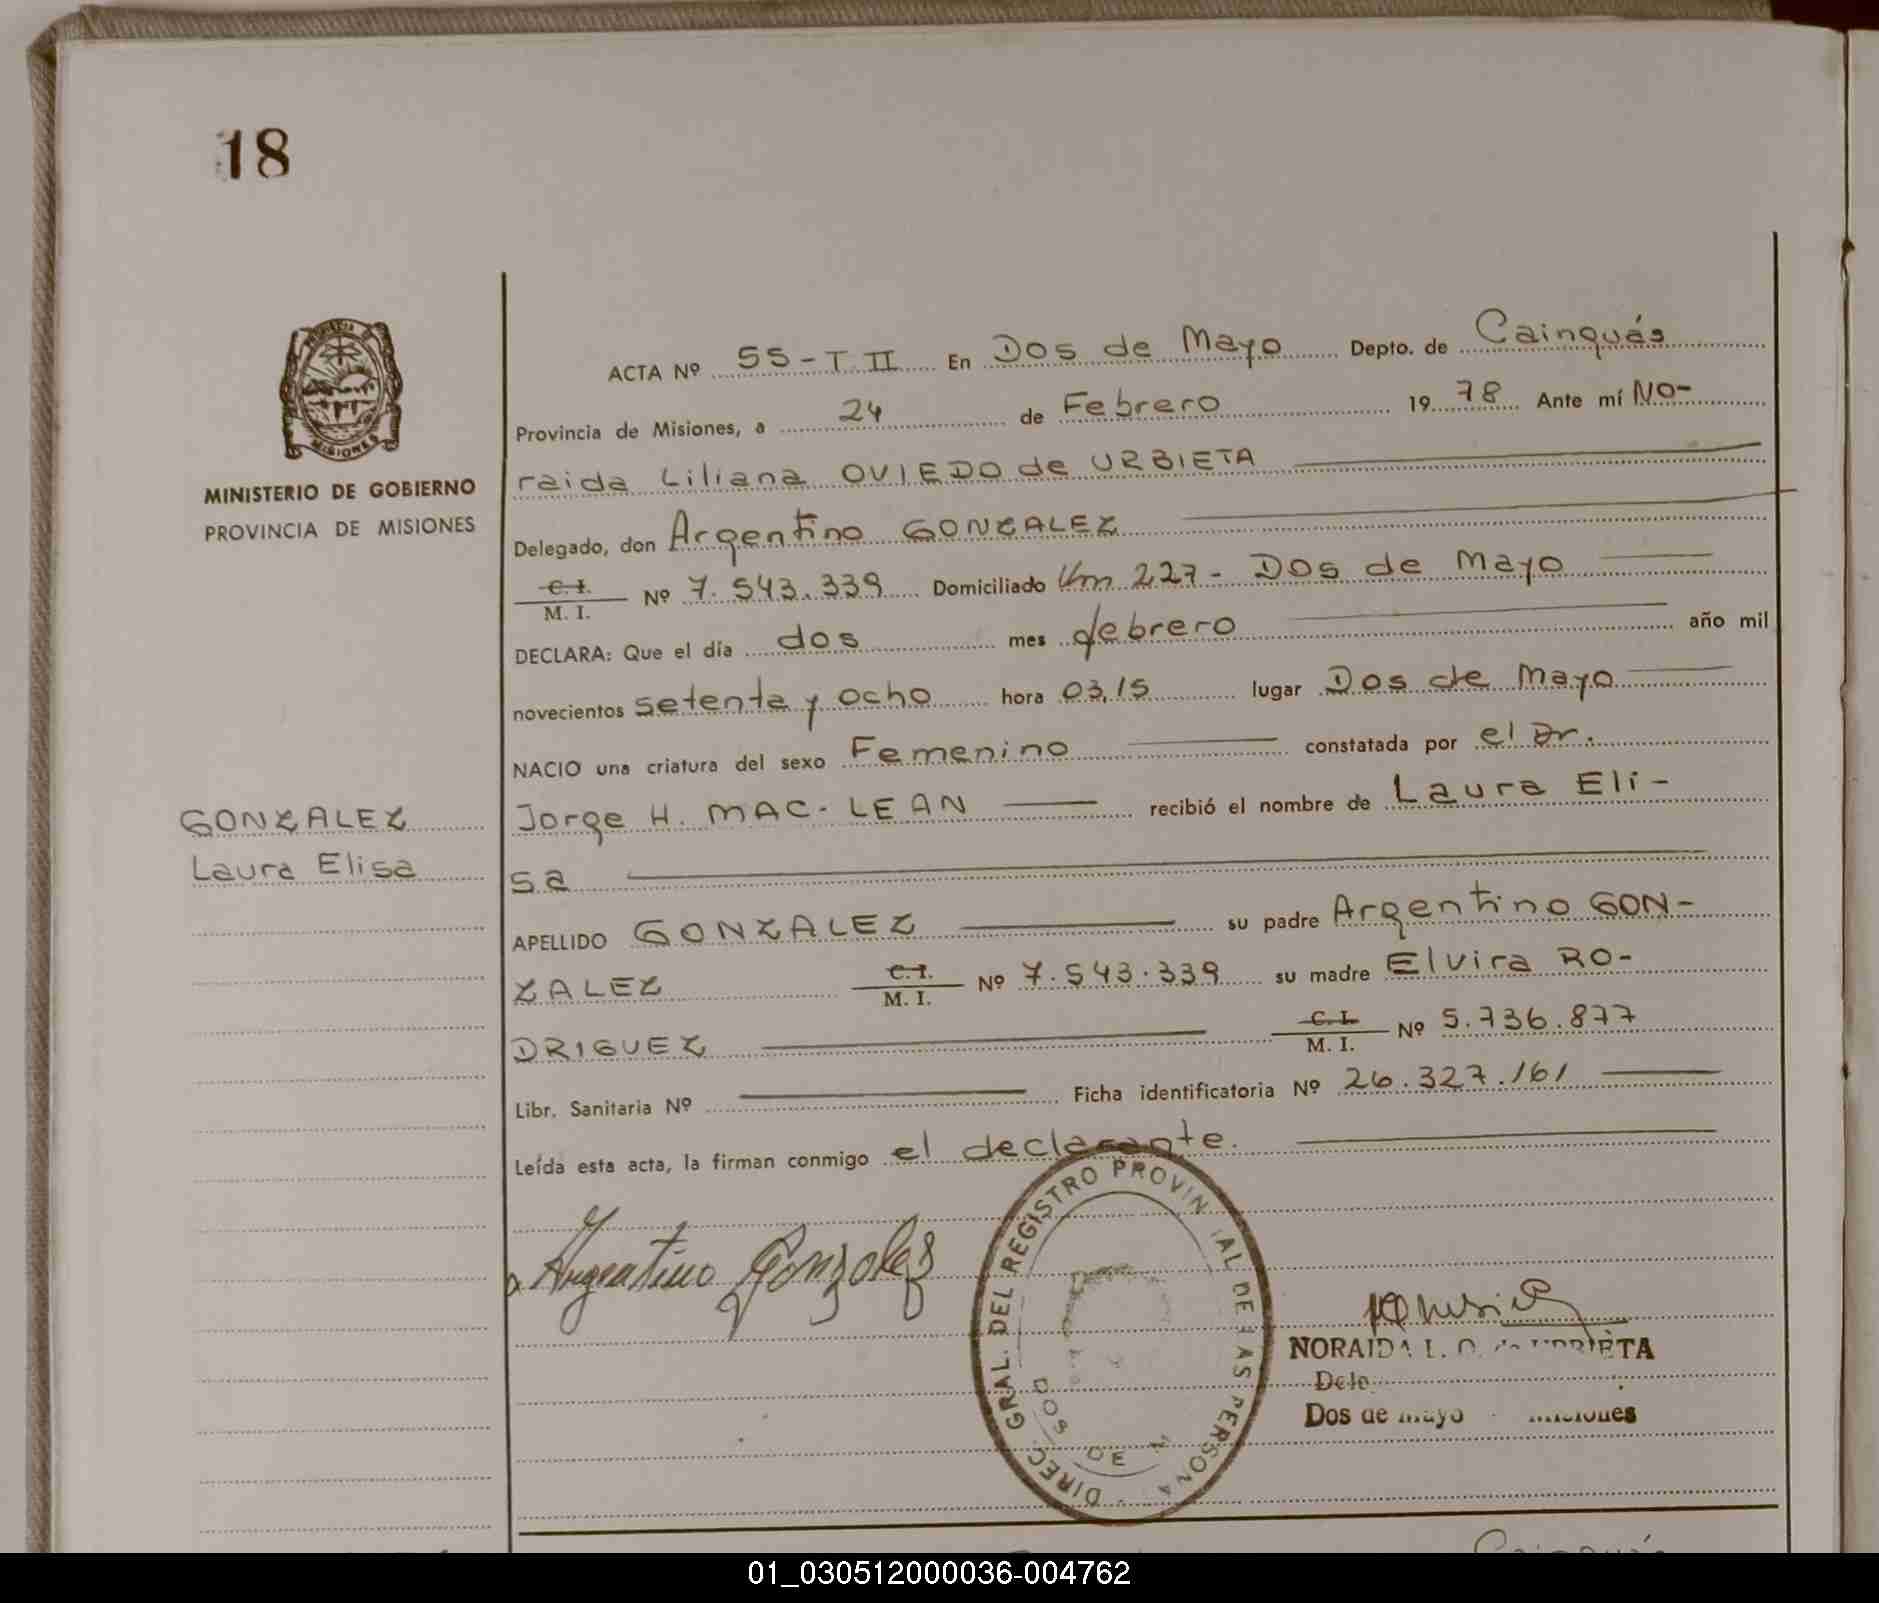 18
MISIONES
MINISTERIO DE GOBIERNO
PROVINCIA DE MISIONES
GONZALEZ
Laura Elisa
ACTA Nº 55-T II En Dos de Mayo Depto. de Cainguás
Provincia de Misiones, a 24 de Febrero 1978 Ante mí NO-
raida Liliana OVIEDO de URBIETA
Delegado, don Argentino GONZALEZ
C. I. M. I. Nº 7.543.339 Domiciliado Km 227 - Dos de Mayo
DECLARA: Que el día dos mes febrero año mil
novecientos setenta y ocho hora 03,15 lugar Dos de Mayo
NACIO una criatura del sexo Femenino constatada por el Dr.
Jorge H. MAC-LEAN recibió el nombre de Laura Eli-
sa
APELLIDO GONZALEZ su padre Argentino GON-
ZALEZ C. I. M. I. Nº 7.543.339 su madre Elvira RO-
DRIGUEZ C. I. M. I. Nº 5.736.877
Libr. Sanitaria Nº Ficha identificatoria Nº 26.327.161
Leída esta acta, la firman conmigo el declarante.
Argentino Gonzalez
DIREC. GRAL. DEL REGISTRO PROVINCIAL DE LAS PERSONAS
DOS DE
NORAIDA L. O. de URBIETA
Dos de Mayo - Misiones
Cainguás
01_030512000036-004762